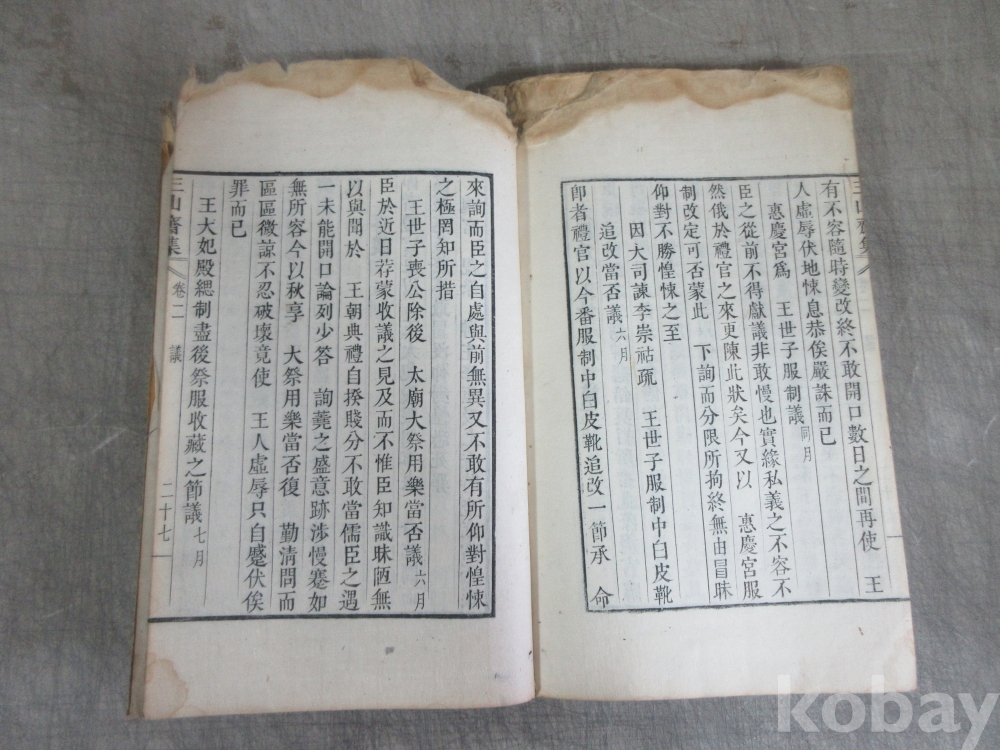 有不容隨時變改終不敢開口數日之間再使 王
人虛辱伏地悚息恭俟嚴誅而已
惠慶宮爲 王世子服制議 同月
臣之從前不得獻議非敢慢也實緣私義之不容不
然俄於禮官之來更陳此狀矣今又以 惠慶宮服
制改定可否蒙此 下詢而分限所拘終無由冒昧
仰對不勝惶悚之至
因大司諫李崇祜疏 王世子服制中白皮靴
追改當否議 六月
卽者禮官以今番服制中白皮靴追改一節承 命
來詢而臣之自處與前無異又不敢有所仰對惶悚
之極罔知所措
王世子喪公除後 太廟大祭用樂當否議 六月
臣於近日荐蒙收議之見及而不惟臣知識昧陋無
以與聞於 王朝典禮自揆賤分不敢當儒臣之遇
一未能開口論列少答 詢蕘之盛意跡涉慢蹇如
無所容今以秋享 大祭用樂當否復 勤清問而
區區微諒不忍破壞竟使 王人虛辱只自蹙伏俟
罪而已
王大妃殿緦制盡後祭服收藏之節議 七月
三山齋集 卷二 議 二十七
kobay